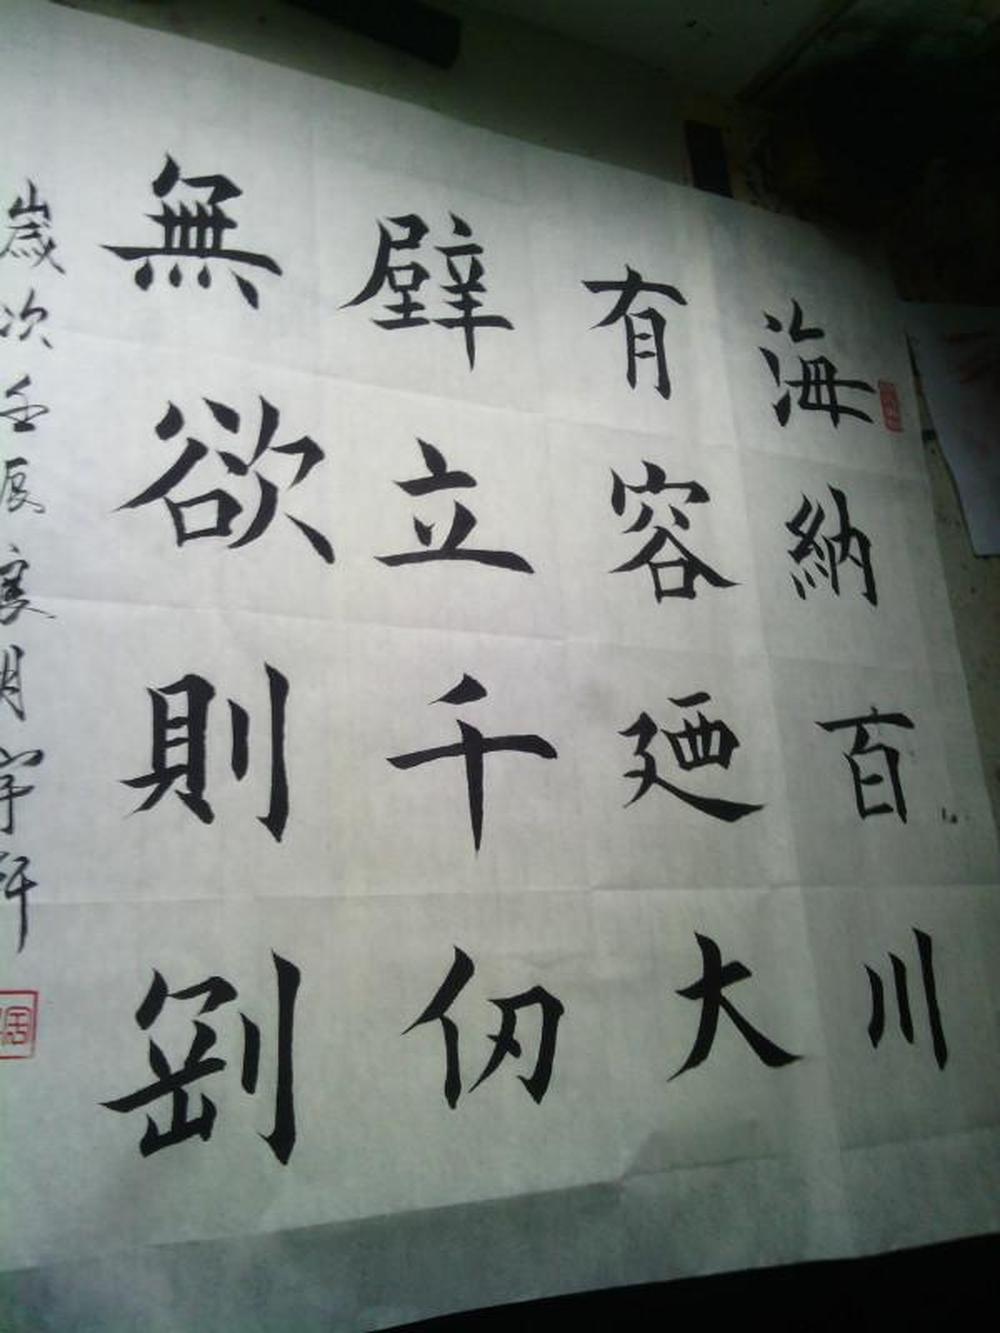 海納百川
有容廼大
壁立千仞
無欲則剛
歲次壬辰寒月宇軒